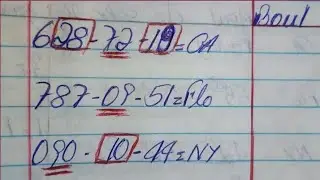 Boul
628-72-19=CA
787-09-51=Flo
090-10-44=NY